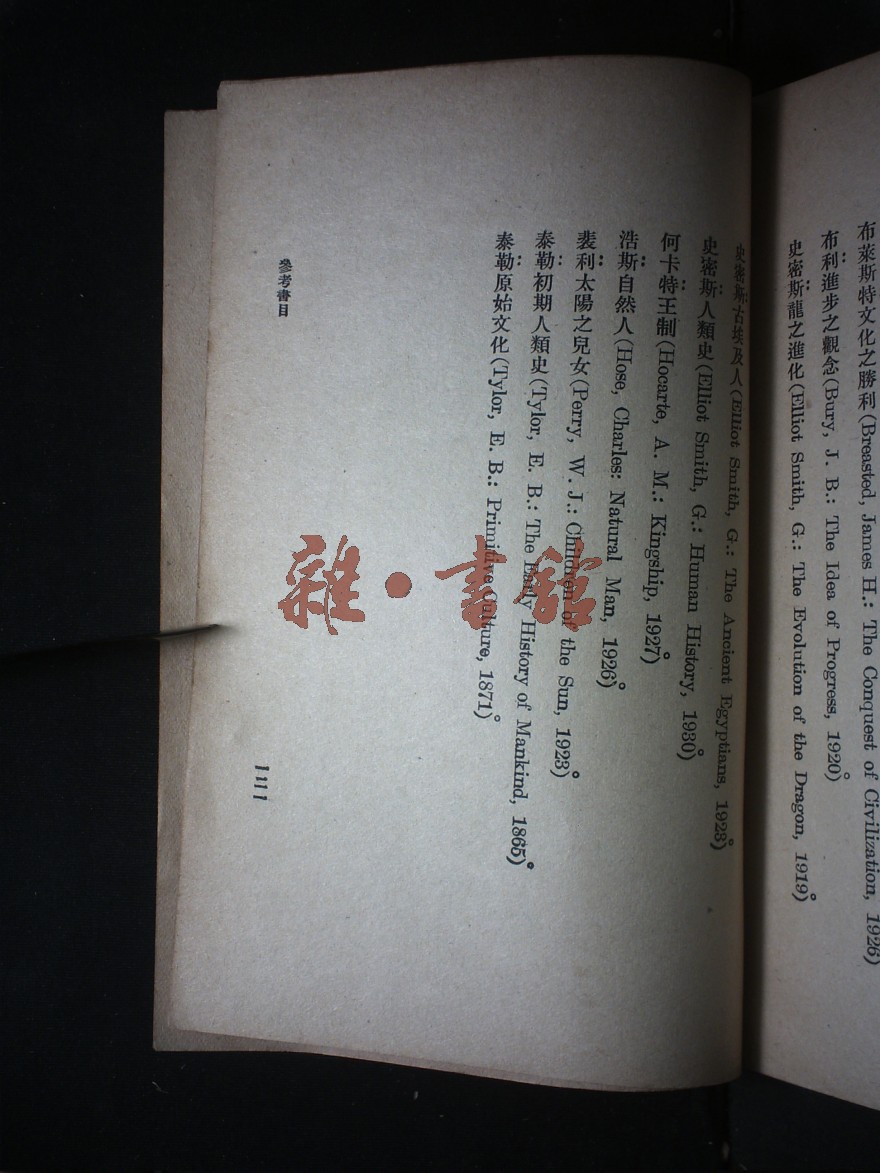 布萊斯特文化之勝利(Breasted, James H.: The Conquest of Civilization, 1926)
布利進步之觀念(Bury, J. B.: The Idea of Progress, 1920)。
史密斯龍之進化(Elliot Smith, G.: The Evolution of the Dragon, 1919)。
史密斯古埃及人(Elliot Smith, G.: The Ancient Egyptians, 1923)。
史密斯人類史(Elliot Smith, G.: Human History, 1930)。
何卡特王制(Hocarte, A. M.: Kingship, 1927)。
浩斯自然人(Hose, Charles: Natural Man, 1926)。
裴利太陽之兒女(Perry, W. J.: Children of the Sun, 1923)。
泰勒初期人類史(Tylor, E. B.: The Early History of Mankind, 1865)。
泰勒原始文化(Tylor, E. B.: Primitive Culture, 1871)。
參考書目
雜·書館